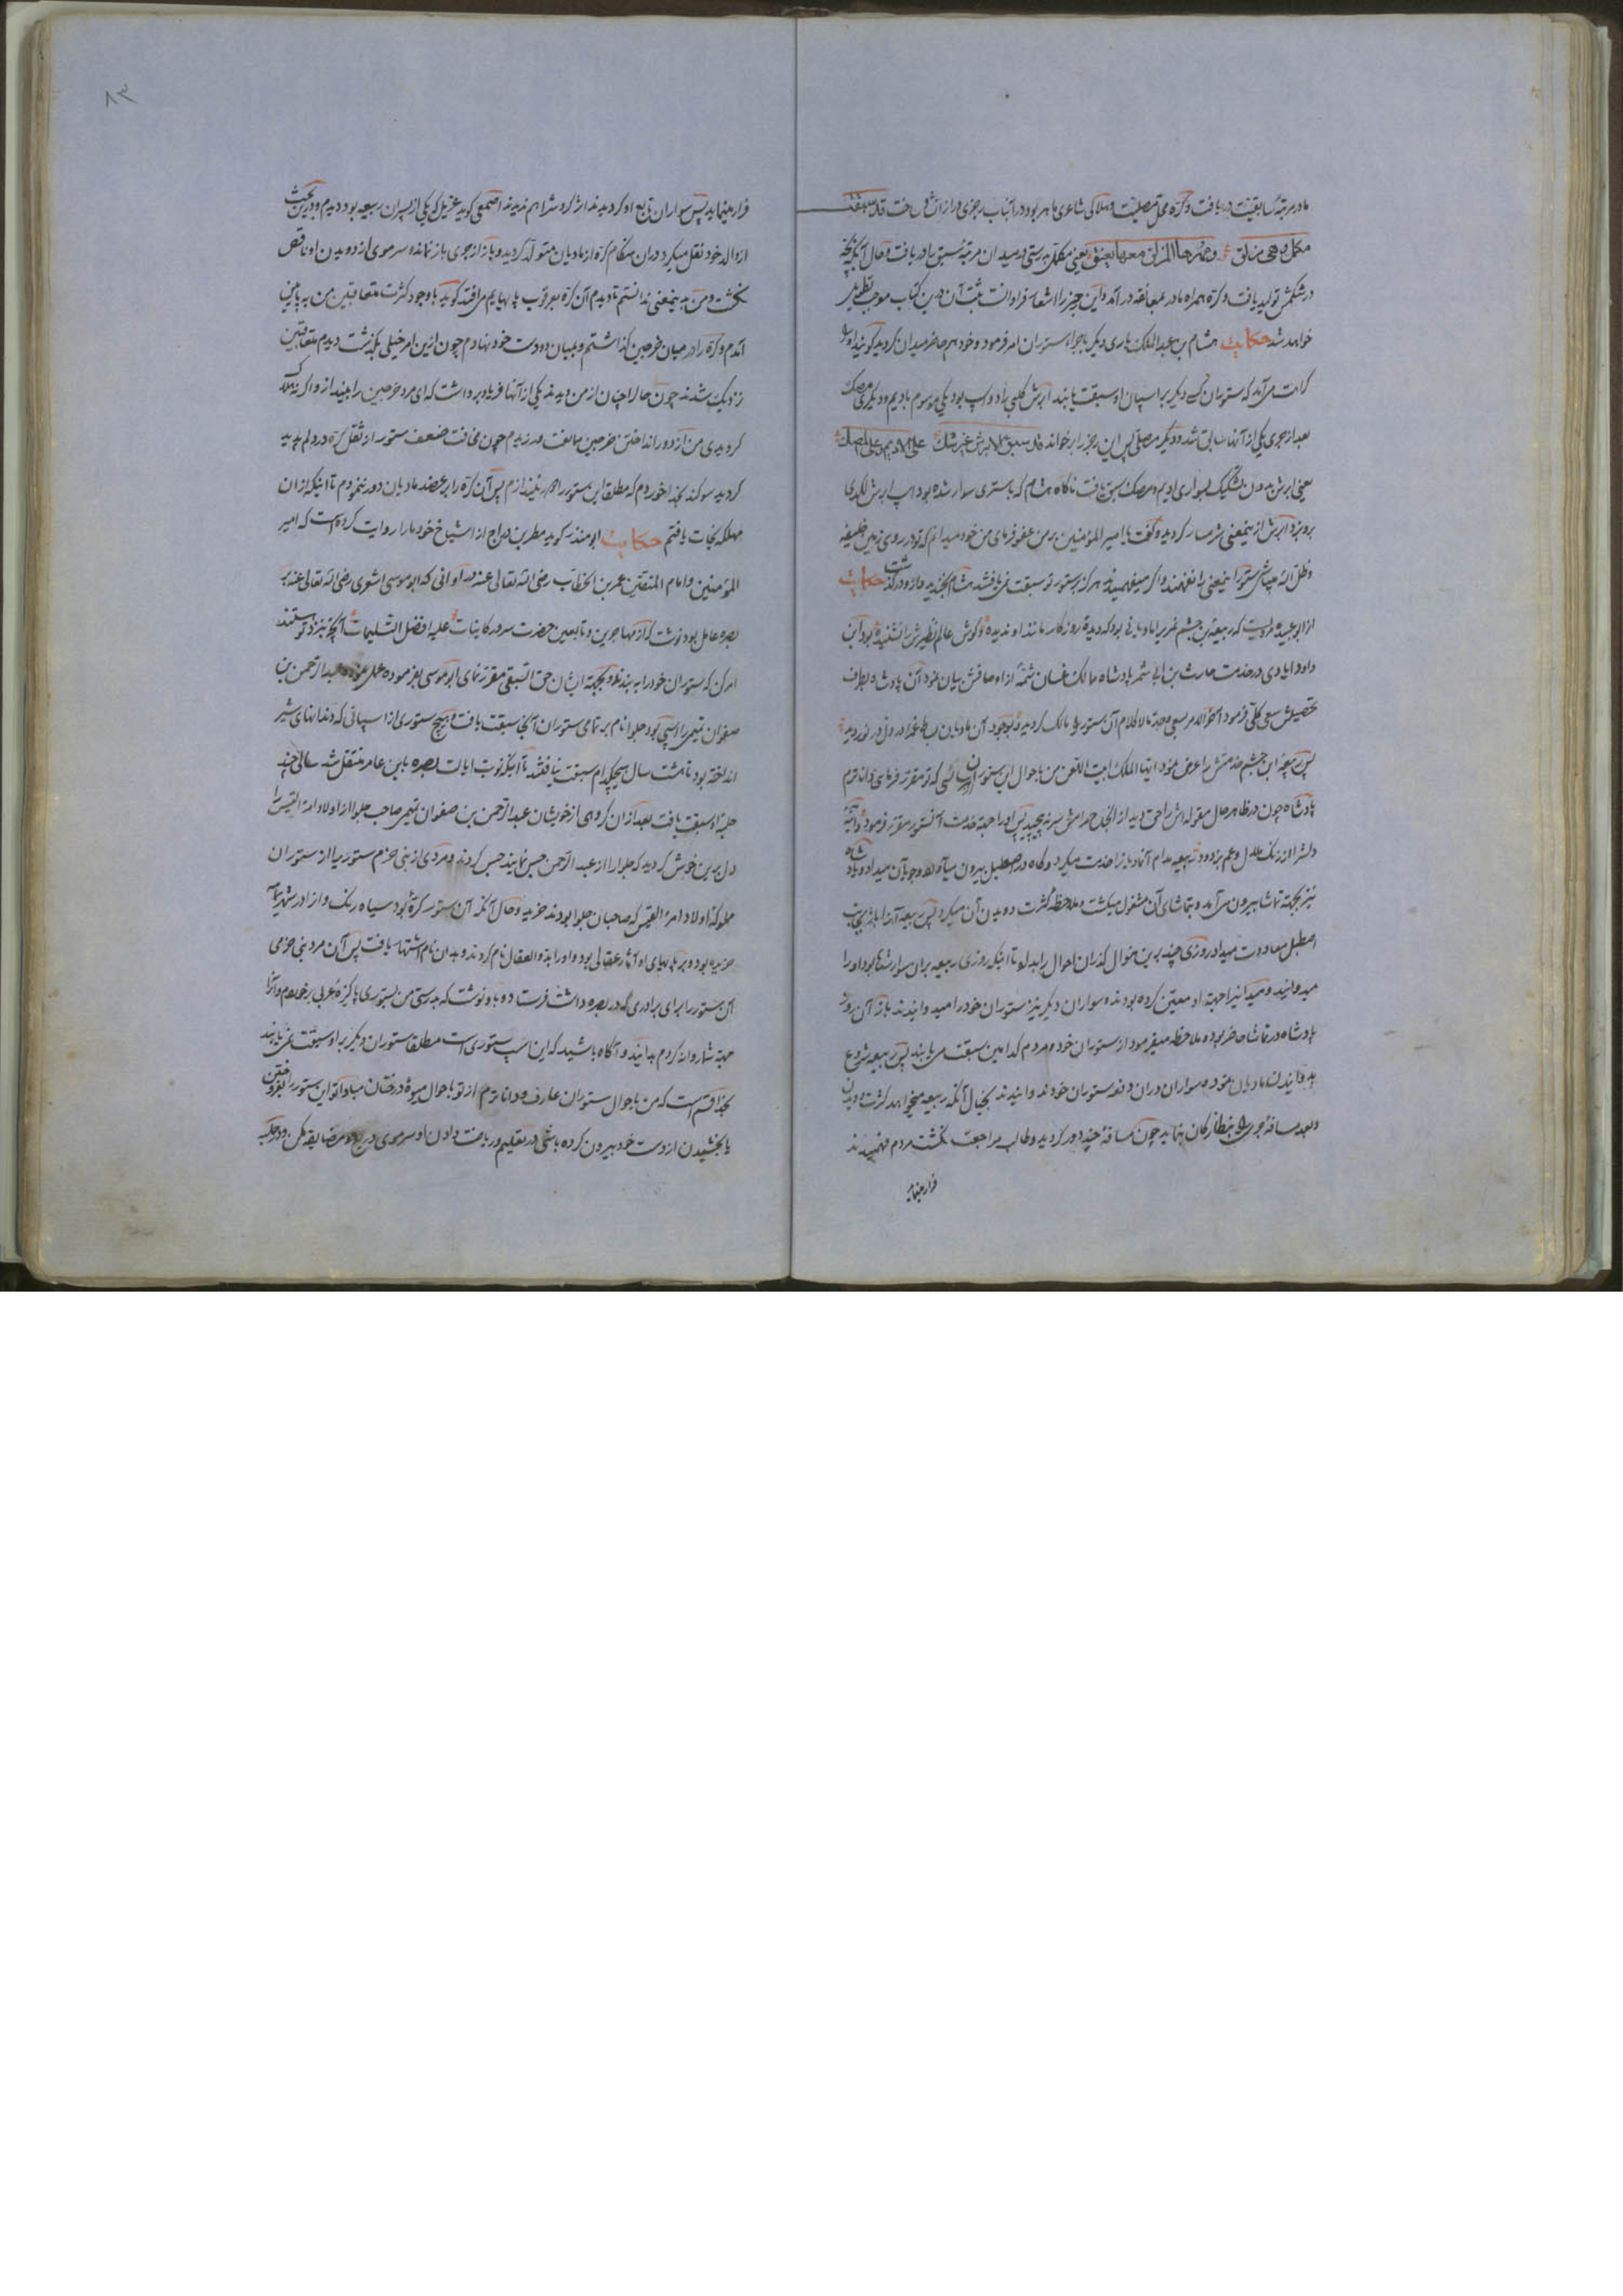 مادر مرتبهٔ سابقیت دریافت و کره محل مصلیت و هلاکی شاعری ماهر بود در آنباب رجزی در از آن ساخت قد سبقت
مکمل وهی مزلق وضمرها المزلق معها یعنق یعنی مکمل برستی در میدان مرتبهٔ سبق را دریافت و حال آنکه بچه
در شکمش تولید یافت و کره همراه مادر بمعانقه در آمد و این رجز را اشعار فراوانست ثبت آن درین کتاب موجب تطویل
خواهد شد حکایت هشام بن عبدالملک باری دیگر باجراء ستوران امر فرمود و خود هم حاضر میدان گردید گویند او را
کراهت می‌آمد که ستوران کسی دیگر بر اسپان او سبقت یابند ابرش کلبی را دو اسپ بود یکی موسوم بادیم و دیگری بمصک
بعد از جری یکی از آنها سابق شد و دیگر مصلی پس این رجز را برخواند قد سبق الابرش غیر شک علی الادیم وعلی المصک
یعنی ابرش بدون تشکیک بسواری ادیم و مصک سبق یافت ناگاه هشام که باستری سوار شده بود اسپ ابرش لگدی
برو بزد ابرش ازینمعنی شرمسار گردید و گفت یا امیر المؤمنین بر من عفو فرمای من خود میدانم که تو در روی زمین خلیفه
و ظل الله میباشی ستور اینمعنی را نفهمند و اگر میفهمیدند هرگز بستور تو سبقت نمی‌یافتند هشام بخندید و ازو درگذشت حکایت
از ابو عبیده مرویست که ربیعة بن جشم نمریرا مادیانی بود که دیدهٔ روزگار مانند او ندیده و گوش عالم نظیرش را نشنیده بود ابن
داود ایادی در خدمت حارث بن ابی شمر پادشاه مالک غسان شمهٔ از اوصافش بیان نمود آن پادشاه بطرف
تحصیلش سعی کلی فرمود آخر الامر بسعی و جد مالاکلام آن ستور را مالک گردید و بوجود آن مادیان بساط غم از دل در نوردید
پس ربیعة ابن جشم خدمتش را عرض نمود ایها الملک ابیت اللعن من باحوال این ستور از آن کسی که تو مقرر فرمای داناترم
پادشاه چون در ظاهر حال مقوله‌اش را حق دید از انجاح مرامش سر نه پیچید پس او را بجهة خدمت آنستور مقرر فرمود و آئینهٔ
دلش را از زنگ ملال و غم بزدود ربیعه مدام آنمادیانرا خدمت میکرد و گاه در اصطبل بیرون میآورد و جولان میداد و پادشاه
نیز بجهة تماشا بیرون می‌آمد و بتماشای آن مشغول میگشت و ملاحظه کثرت دویدن آن میکرد پس ربیعه آنرا باز بجانب
اصطبل معاودت میداد روزی چند برین منوال گذران احوال را بداد تا اینکه روزی ربیعه بران سوار شده بود او را
میدوانید و میدانیرا بجهة او معین کرده بودند و سواران دیگر نیز ستوران خود را میدوانیدند باز آن روز
پادشاه در تماشا حاضر بوده ملاحظه میفرمود از ستوران خود و مردم کدامین سبقت می‌یابند پس ربیعه شروع
به دوانیدن مادیان نموده سواران دران دفعه ستوران خود نمی‌دوانیدند بخیال آنکه ربیعه میخواهد کثرت دویدن
و بعد مسافهٔ جری او بنظارگان بنماید چون مسافهٔ چند دور گردید و طالب مراجعت نگشت مردم فهمیدند
فرار مینماید
فرار مینماید پس سواران تابع او گردیدند اثر گردش را هم ندیدند اصمعی گوید عزیل که یکی از پسران ربیعه بود دیدم و درین بحث
از والد خود نقل میکرد دران هنگام کره از مادیان متولد گردید و باز از جری باز نمانده سر موی از دویدن او ناقص
نگشت و من اینمعنی ندانستم تا دیدم آن کره بعرقوب پایهایم می‌افتد گوید با وجود کثرت متعاقبین من به پایین
آمدم و کره را در میان خرجین گذاشتم و بمیان دو دست خود نهادم چون ازین امر خیلی بگذشت دیدم متعاقبین
نزدیک شدند چون حال را چنان از من دیدند یکی از آنها فریاد برداشت که ای مرد خرجین را بینداز و اگر نه هلاک
گردیدی من از دور انداختن خرجین مبالغت ورزیدم چون مخافت ضعف ستور از ثقل کره در دلم پدید
گردید سوگند بخدا خوردم که مطلقا این ستور را هم نیندازم پس آن کره را بر عضد مادیان دور ننمودم تا اینکه از ان
مهلکه نجات یافتم حکایت ابو منذر گوید مطر بن دراج از اشیاخ خود ما را روایت کرده است که امیر
المؤمنین و امام المتقین عمر بن الخطاب رضی الله تعالی عنه در اوانی که ابو موسی اشعری رضی الله تعالی عنه بر
بصره عامل بود نوشت که از مهاجرین و تابعین حضرت سرور کاینات علیه افضل التسلیمات آنچه نزد تو هستند
امر کن که ستوران خود را به بندند و بجهة ایشان حق السبقی مقرر نمای ابو موسی بفرموده عمل نمود عبدالرحمن بن
صفوان تیمی را اسپی بود جلوا نام بر تمامی ستوران آنجا سبقت یافت و هیچ ستوری از اسپانی که دندانهای شیر
انداخته بود تا هشت سال هیچکدام سبقت نیافتند تا آنکه نوبت ایالت بصره بابن عامر منتقل شد سالی چند
جلبهٔ او سبقت یافت بعد از ان گروهی از خویشان عبدالرحمن بن صفوان تیمی صاحب جلوا از اولاد امرء القیس را
دل برین خوش گردید که جلوا را از عبد الرحمن حبس نمایند حبس کردند و مردی از بنی حزم ستوری را از ستوران
مملوکه اولاد امرء القیس که صاحبان جلوا بودند خرید و حال آنکه آن ستور کرهٔ بود سیاه رنگ و از مادرش
خریده بود و بر پایهای او آثار عقالی بود و او را بذو العقال نام کردند و بدان نام اشتهار یافت پس آن مرد بنی حزمی
آن ستور را برای برادری که در بصره داشت فرستاد و باو نوشت که برستی من بستوری پاکیزهٔ عربی برخوردم و آنرا
بجهة شما روانه کردم بدانید و آگاه باشید که این اسب ستوری است مطلقا ستوران دیگر بر او سبقت نمی‌یابند
بخدا قسم است که من باحوال ستوران عارف و داناترم از تو باحوال میوهٔ درختان مبادا تو این ستور را بفروختن
یا بخشیدن از دست خود بیرون کرده باشی در تعلیم و ریاضت دادن او سر موی دریغ و مضایقه مکن و در جلبه